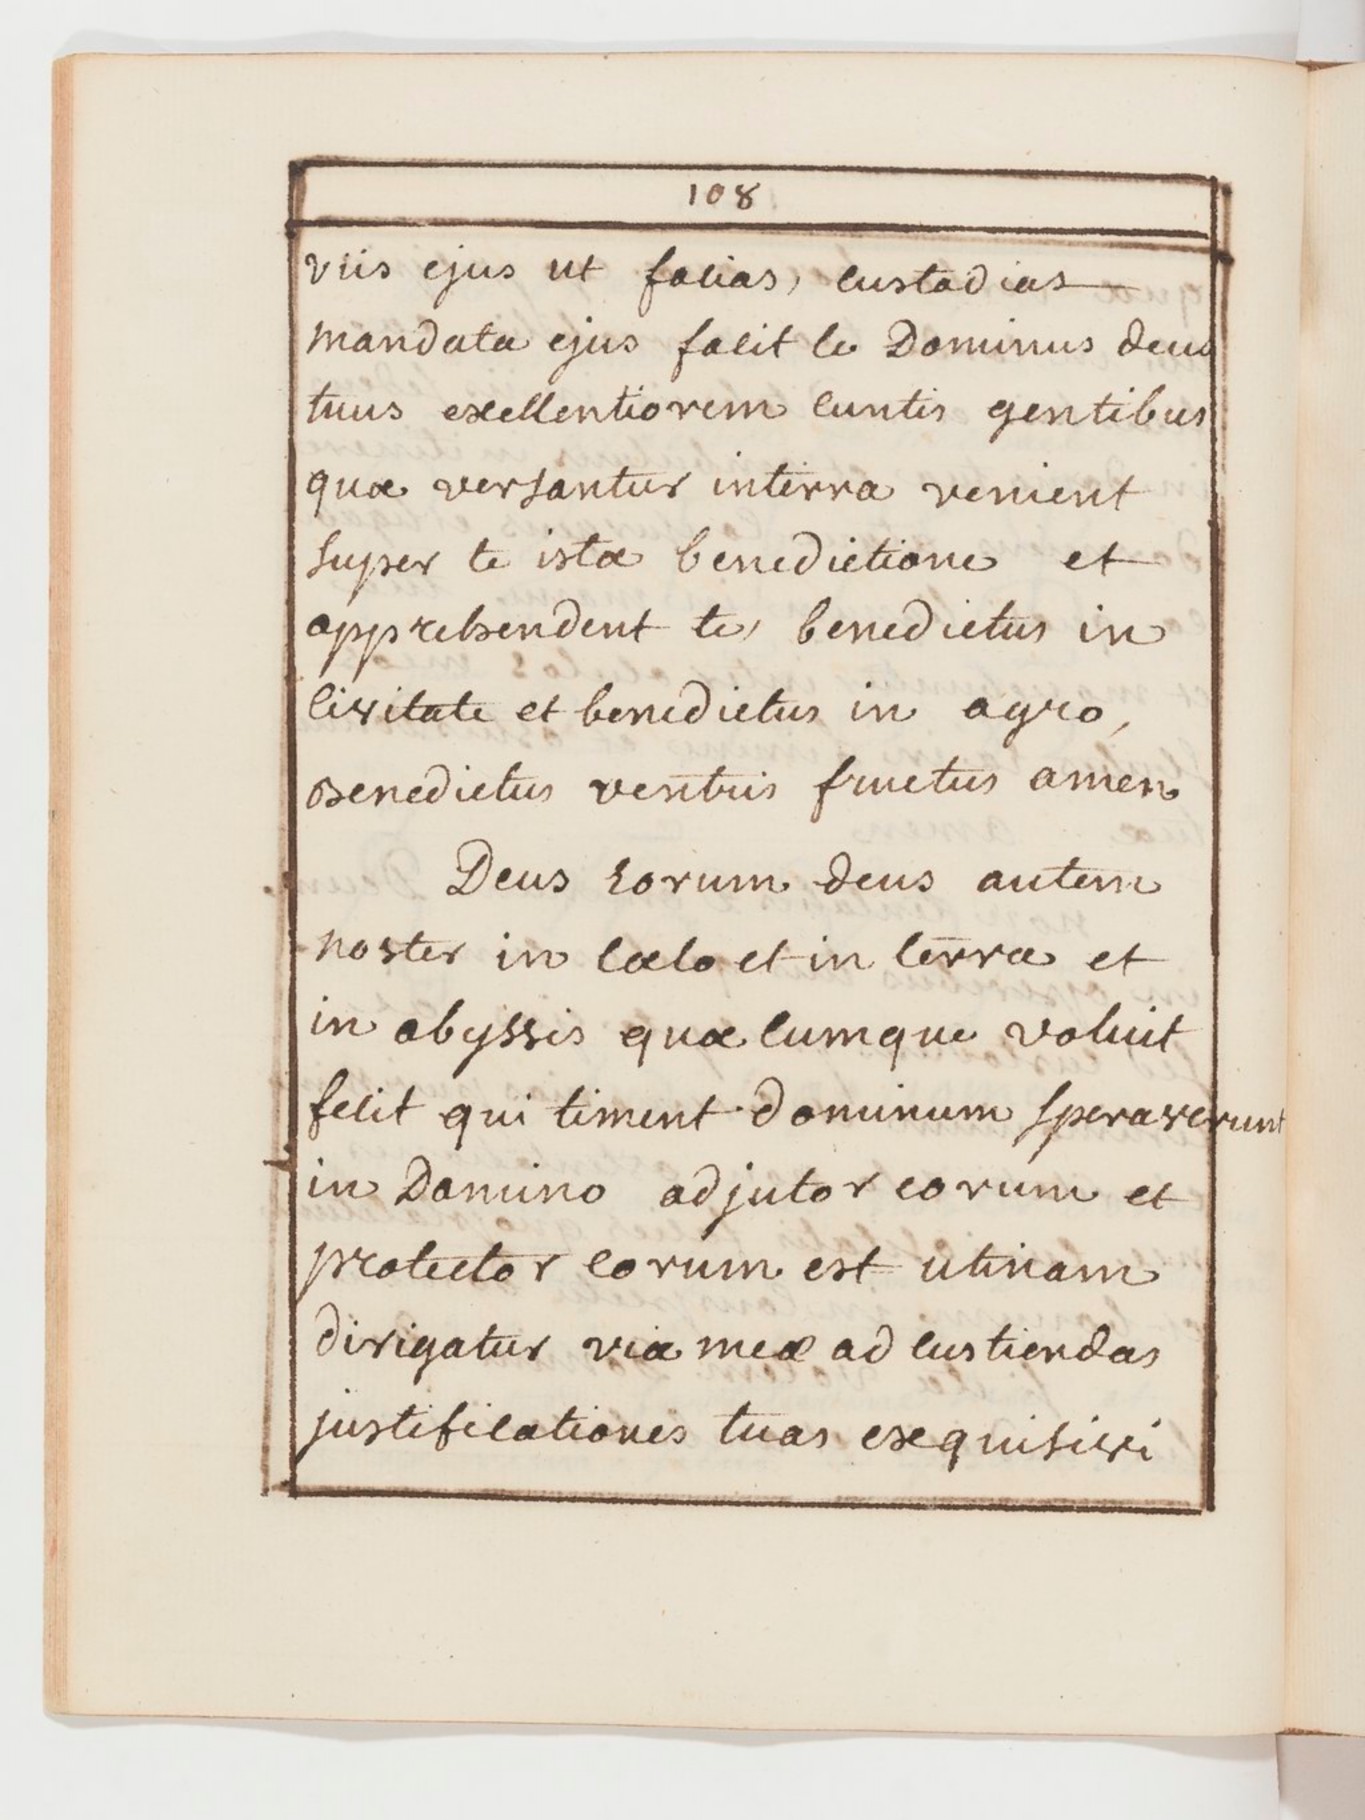 108
viis ejus ut facias, custodias
mandata ejus facit te Dominus deus
tuus excellentiorem cuntis gentibus
quæ versantur interra venient
super te istæ benedictione et
apprehendent te, benedictus in
civitate et benedictus in agro,
benedictus ventris fructus amen
Deus eorum deus autem
noster in cœlo et in terra et
in abyssis quæcumque voluit
fecit qui timent dominum speraverunt
in Domino adjutor eorum et
protector eorum est utinam
dirigatur viæ meæ ad custiendas
justificationes tuas exquisivi